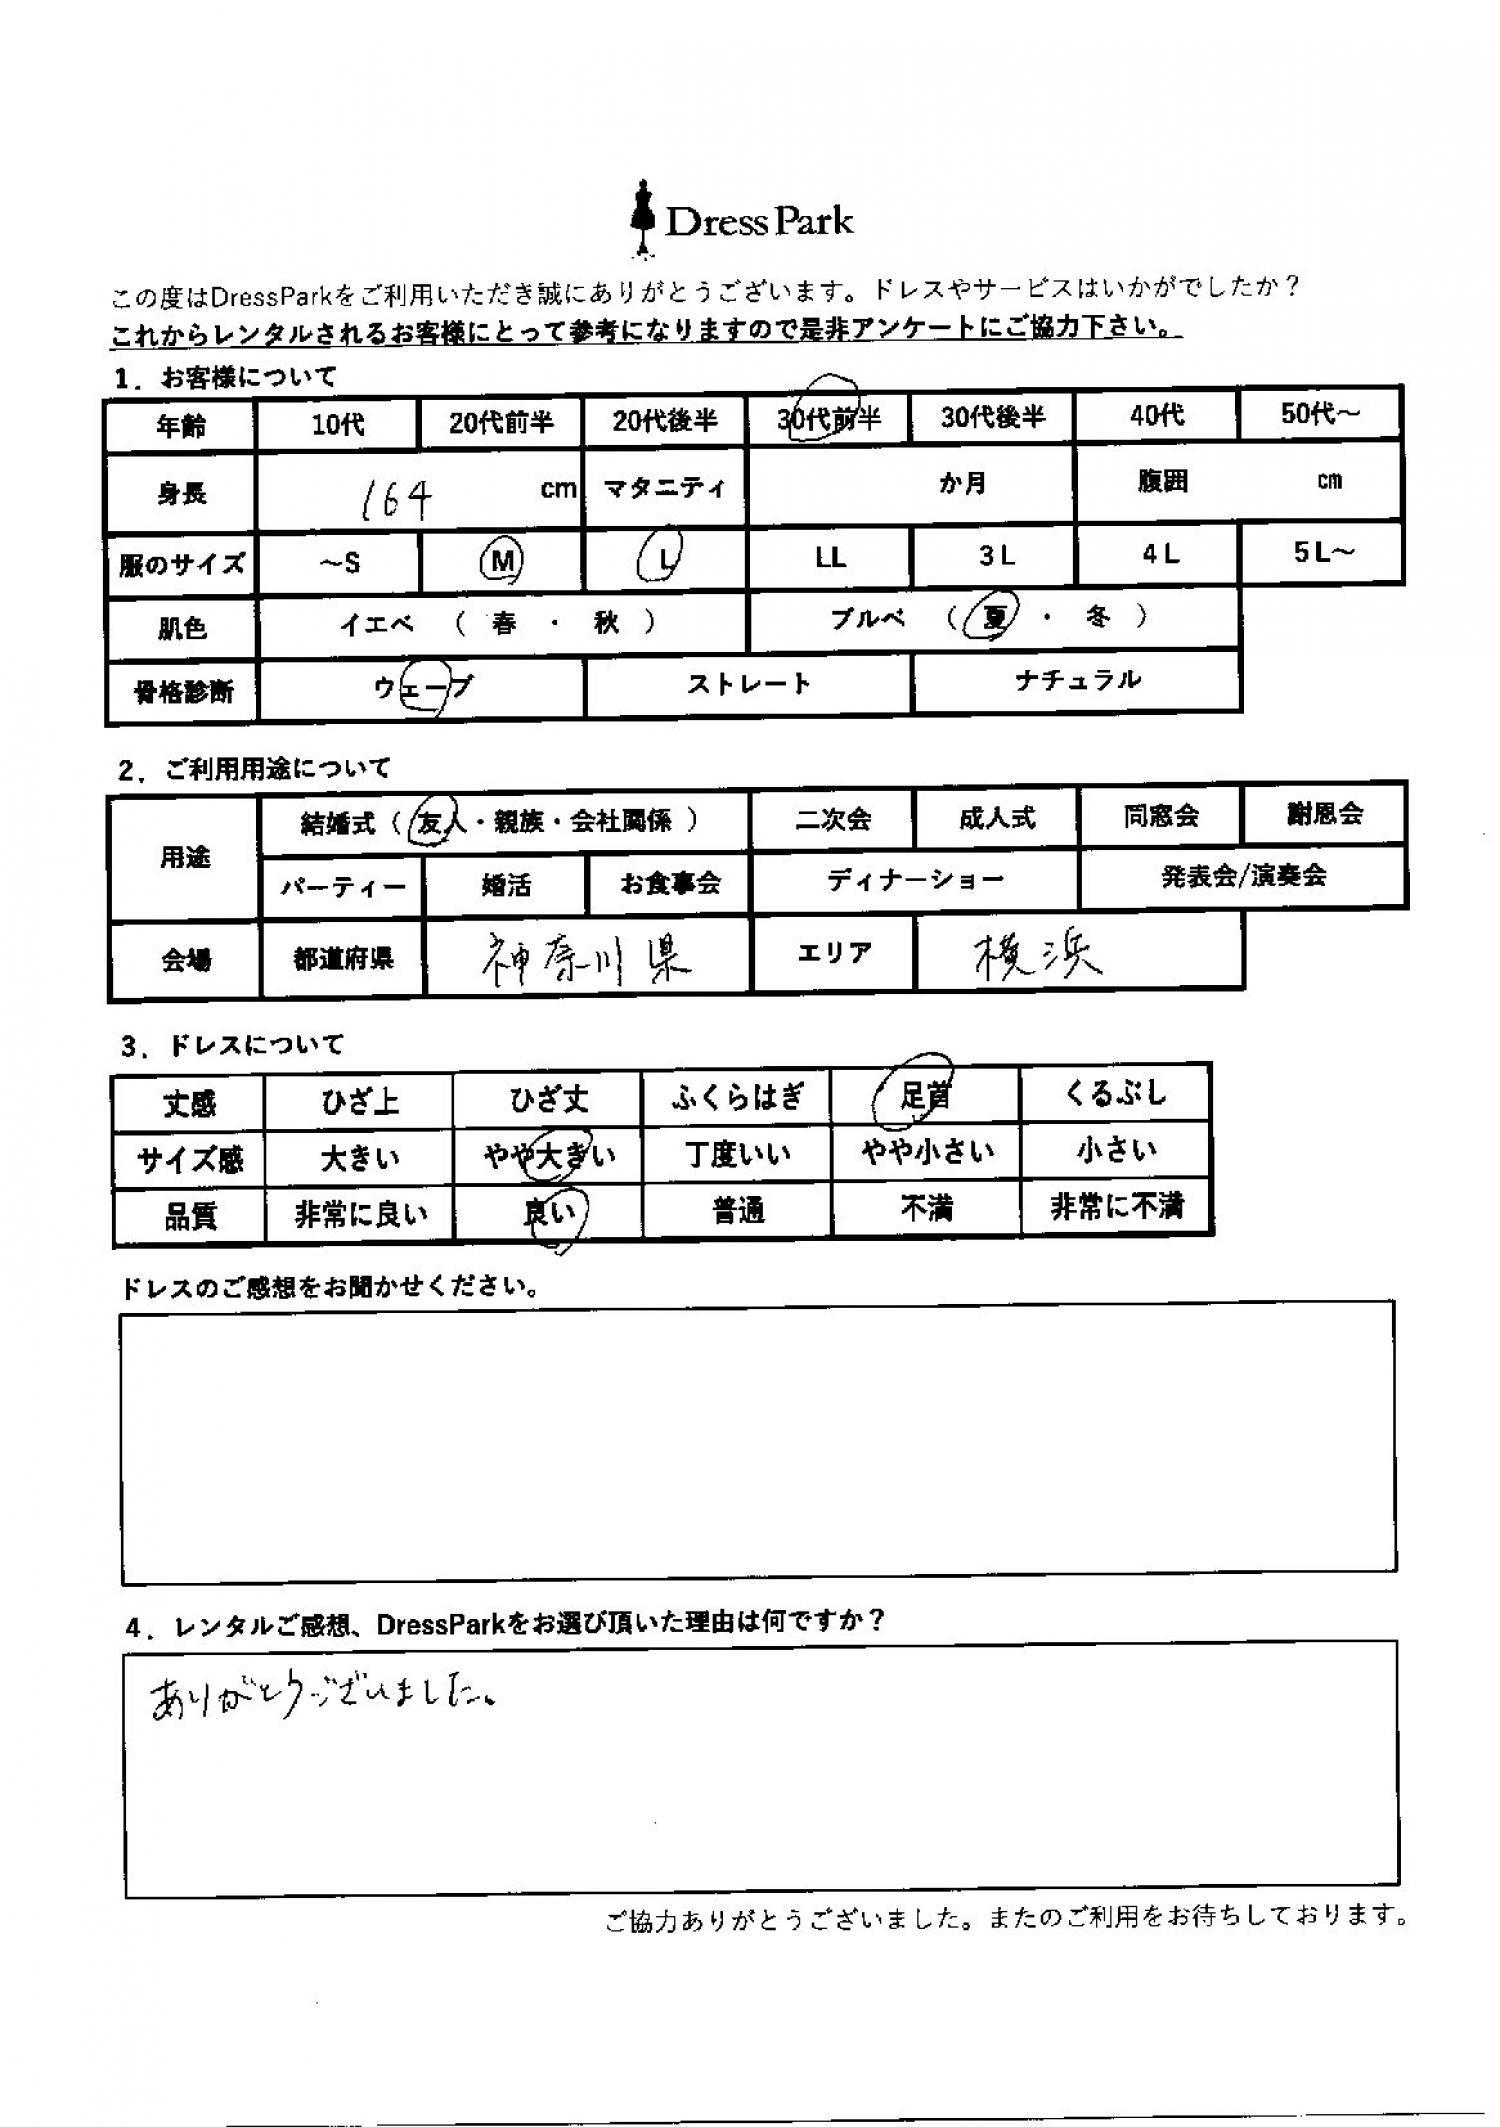 Dress Park
この度はDressParkをご利用いただき誠にありがとうございます。ドレスやサービスはいかがでしたか？
これからレンタルされるお客様にとって参考になりますので是非アンケートにご協力下さい。
1．お客様について
年齢 10代 20代前半 20代後半 30代前半 30代後半 40代 50代～
身長 164 cm マタニティ か月 腹囲 cm
服のサイズ ～S M L LL 3L 4L 5L～
肌色 イエベ （ 春 ・ 秋 ） ブルベ （ 夏 ・ 冬 ）
骨格診断 ウェーブ ストレート ナチュラル
2．ご利用用途について
用途 結婚式（ 友人・親族・会社関係 ） 二次会 成人式 同窓会 謝恩会
パーティー 婚活 お食事会 ディナーショー 発表会/演奏会
会場 都道府県 神奈川県 エリア 横浜
3．ドレスについて
丈感 ひざ上 ひざ丈 ふくらはぎ 足首 くるぶし
サイズ感 大きい やや大きい 丁度いい やや小さい 小さい
品質 非常に良い 良い 普通 不満 非常に不満
ドレスのご感想をお聞かせください。
4．レンタルご感想、DressParkをお選び頂いた理由は何ですか？
ありがとうございました。
ご協力ありがとうございました。またのご利用をお待ちしております。